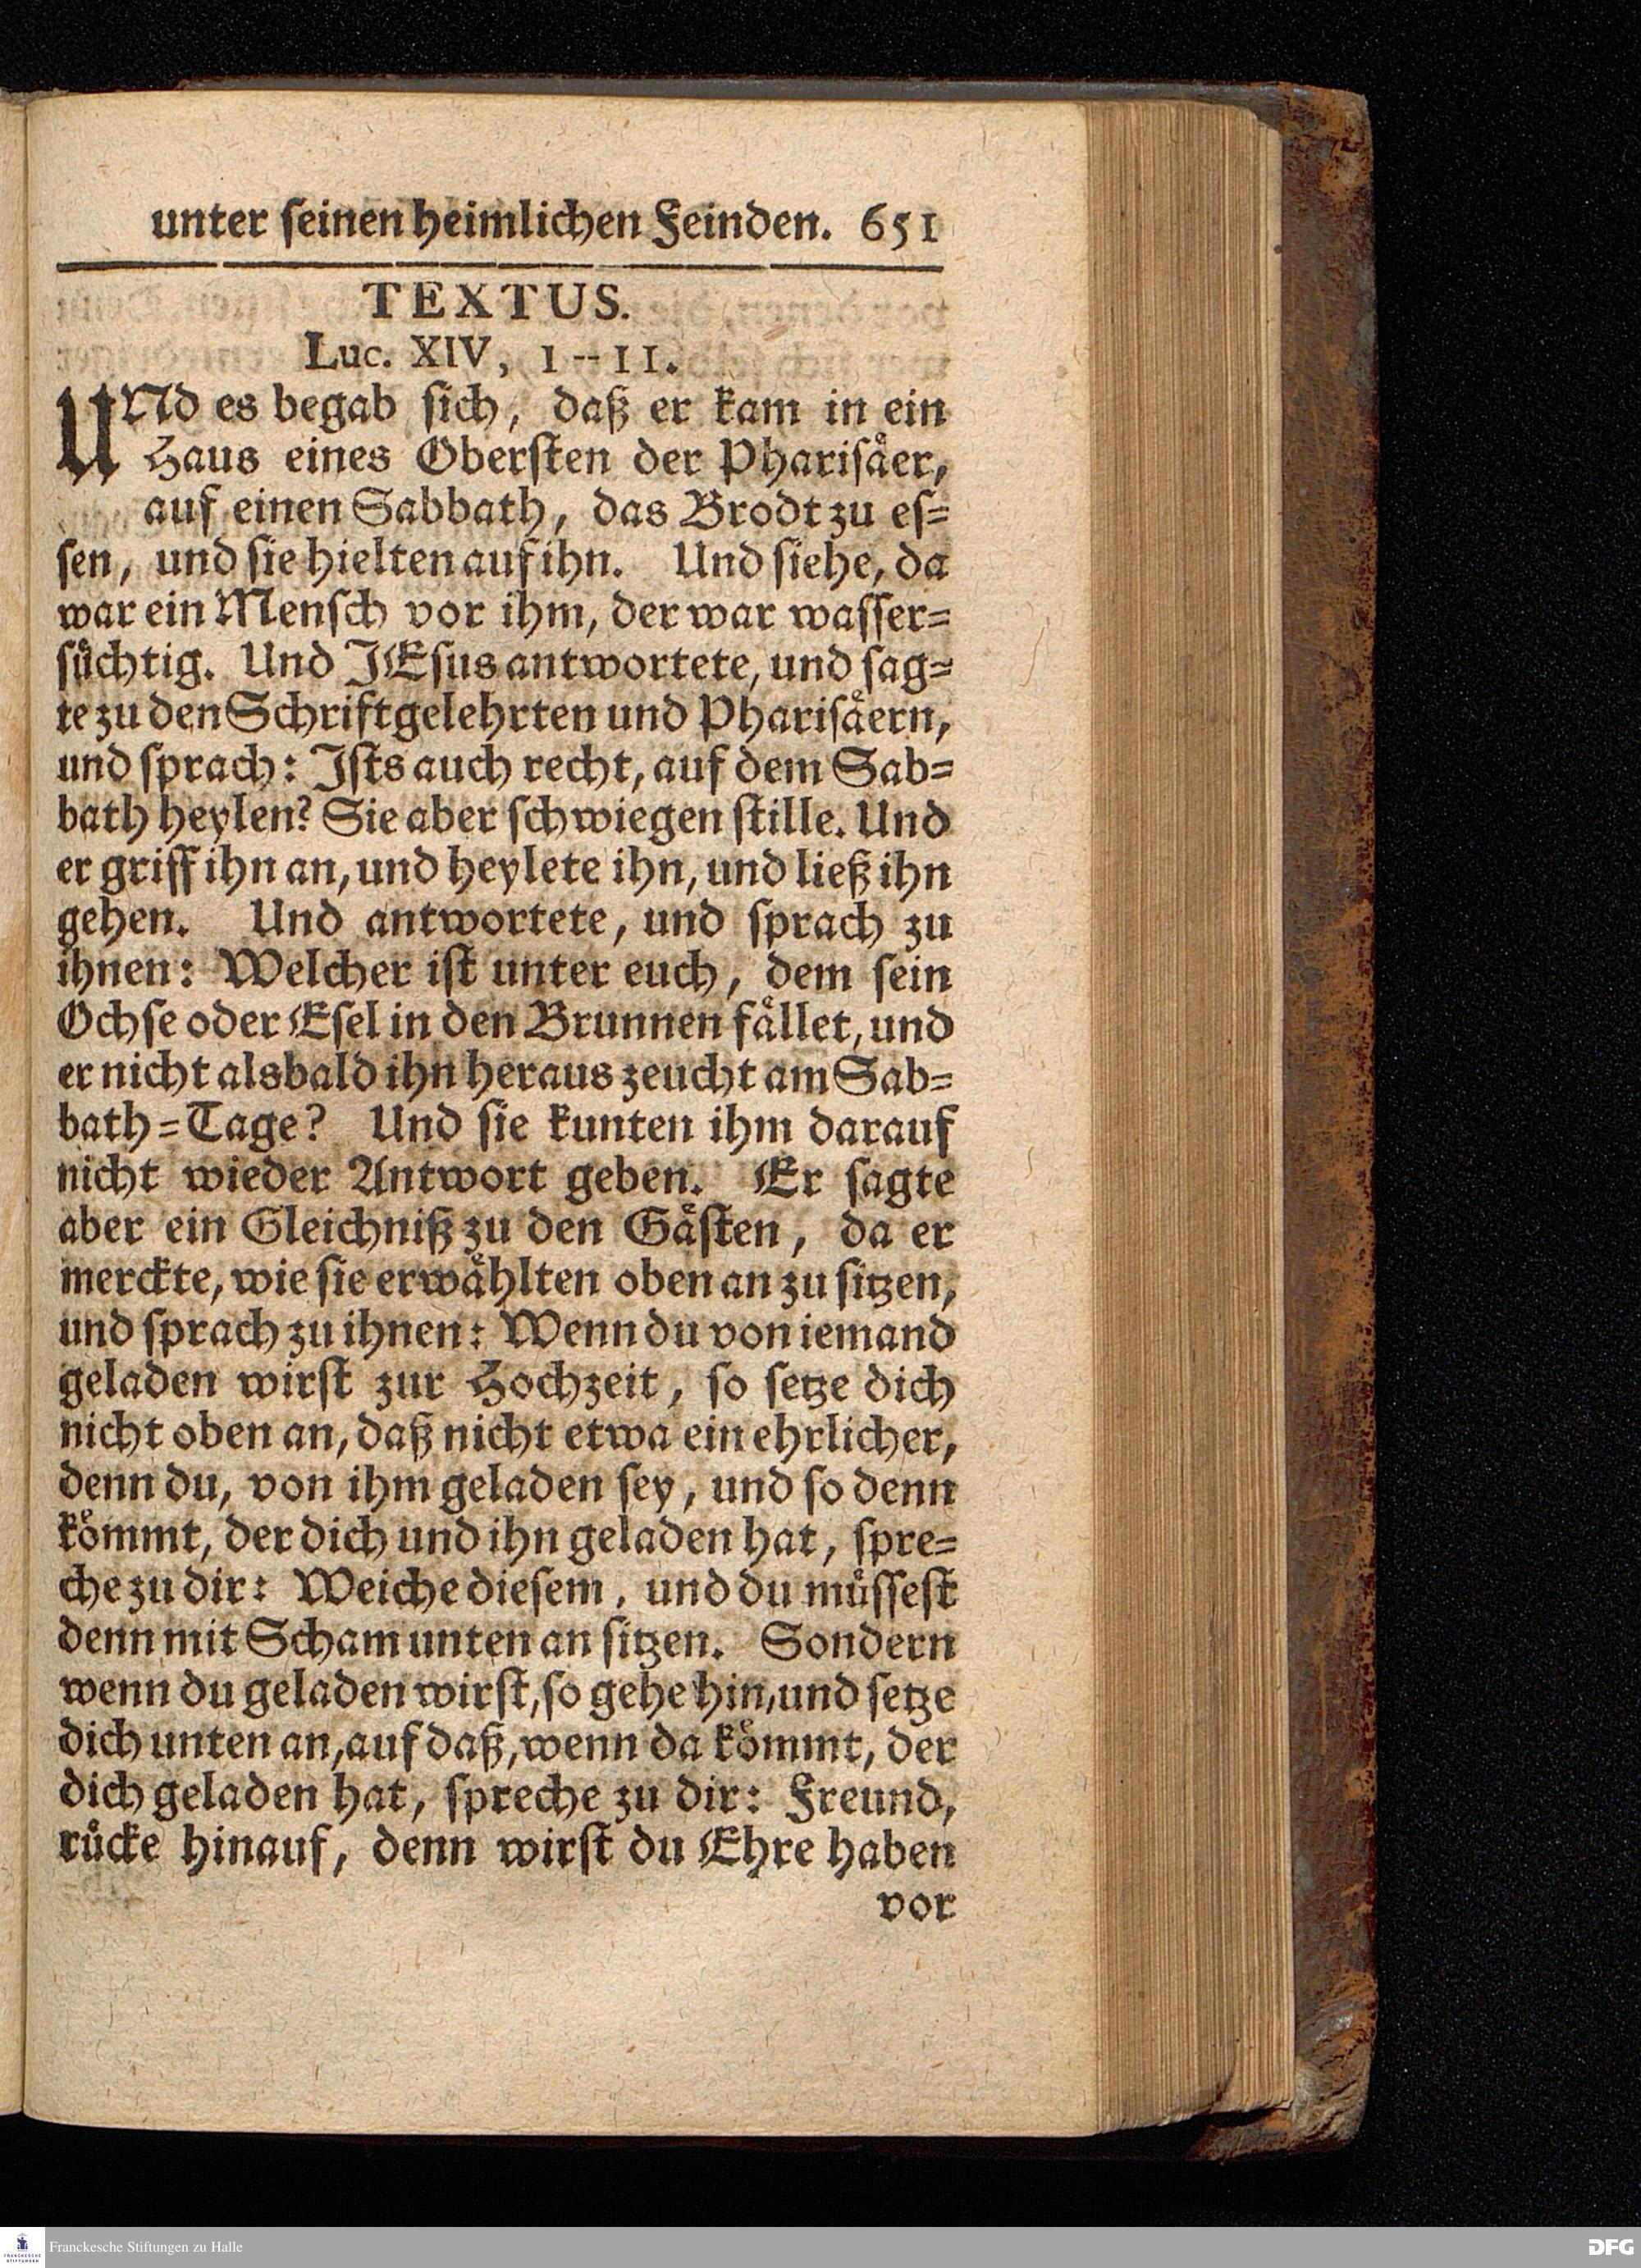 unter ſeinen heimlichen Feinden. 651
TEXTUS.
Luc. XIV, 1--11.
UNd es begab ſich, daß er kam in ein
Haus eines Oberſten der Phariſaͤer,
auf einen Sabbath, das Brodt zu eſ=
ſen, und ſie hielten auf ihn. Und ſiehe, da
war ein Menſch vor ihm, der war waſſer=
ſuͤchtig. Und JEſus antwortete, und ſag=
te zu den Schriftgelehrten und Phariſaͤern,
und ſprach: Iſts auch recht, auf dem Sab=
bath heylen? Sie aber ſchwiegen ſtille. Und
er griff ihn an, und heylete ihn, und ließ ihn
gehen. Und antwortete, und ſprach zu
ihnen: Welcher iſt unter euch, dem ſein
Ochſe oder Eſel in den Brunnen faͤllet, und
er nicht alsbald ihn heraus zeucht am Sab=
bath=Tage? Und ſie kunten ihm darauf
nicht wieder Antwort geben. Er ſagte
aber ein Gleichniß zu den Gaͤſten, da er
merckte, wie ſie erwaͤhlten oben an zu ſitzen,
und ſprach zu ihnen: Wenn du von iemand
geladen wirſt zur Hochzeit, ſo ſetze dich
nicht oben an, daß nicht etwa ein ehrlicher,
denn du, von ihm geladen ſey, und ſo denn
koͤmmt, der dich und ihn geladen hat, ſpre=
che zu dir: Weiche dieſem, und du muͤſſeſt
denn mit Scham unten an ſitzen. Sondern
wenn du geladen wirſt, ſo gehe hin, und ſetze
dich unten an, auf daß, wenn da koͤmmt, der
dich geladen hat, ſpreche zu dir: Freund,
ruͤcke hinauf, denn wirſt du Ehre haben
vor
FRANCKESCHE
STIFTUNGEN
Franckesche Stiftungen zu Halle
DFG